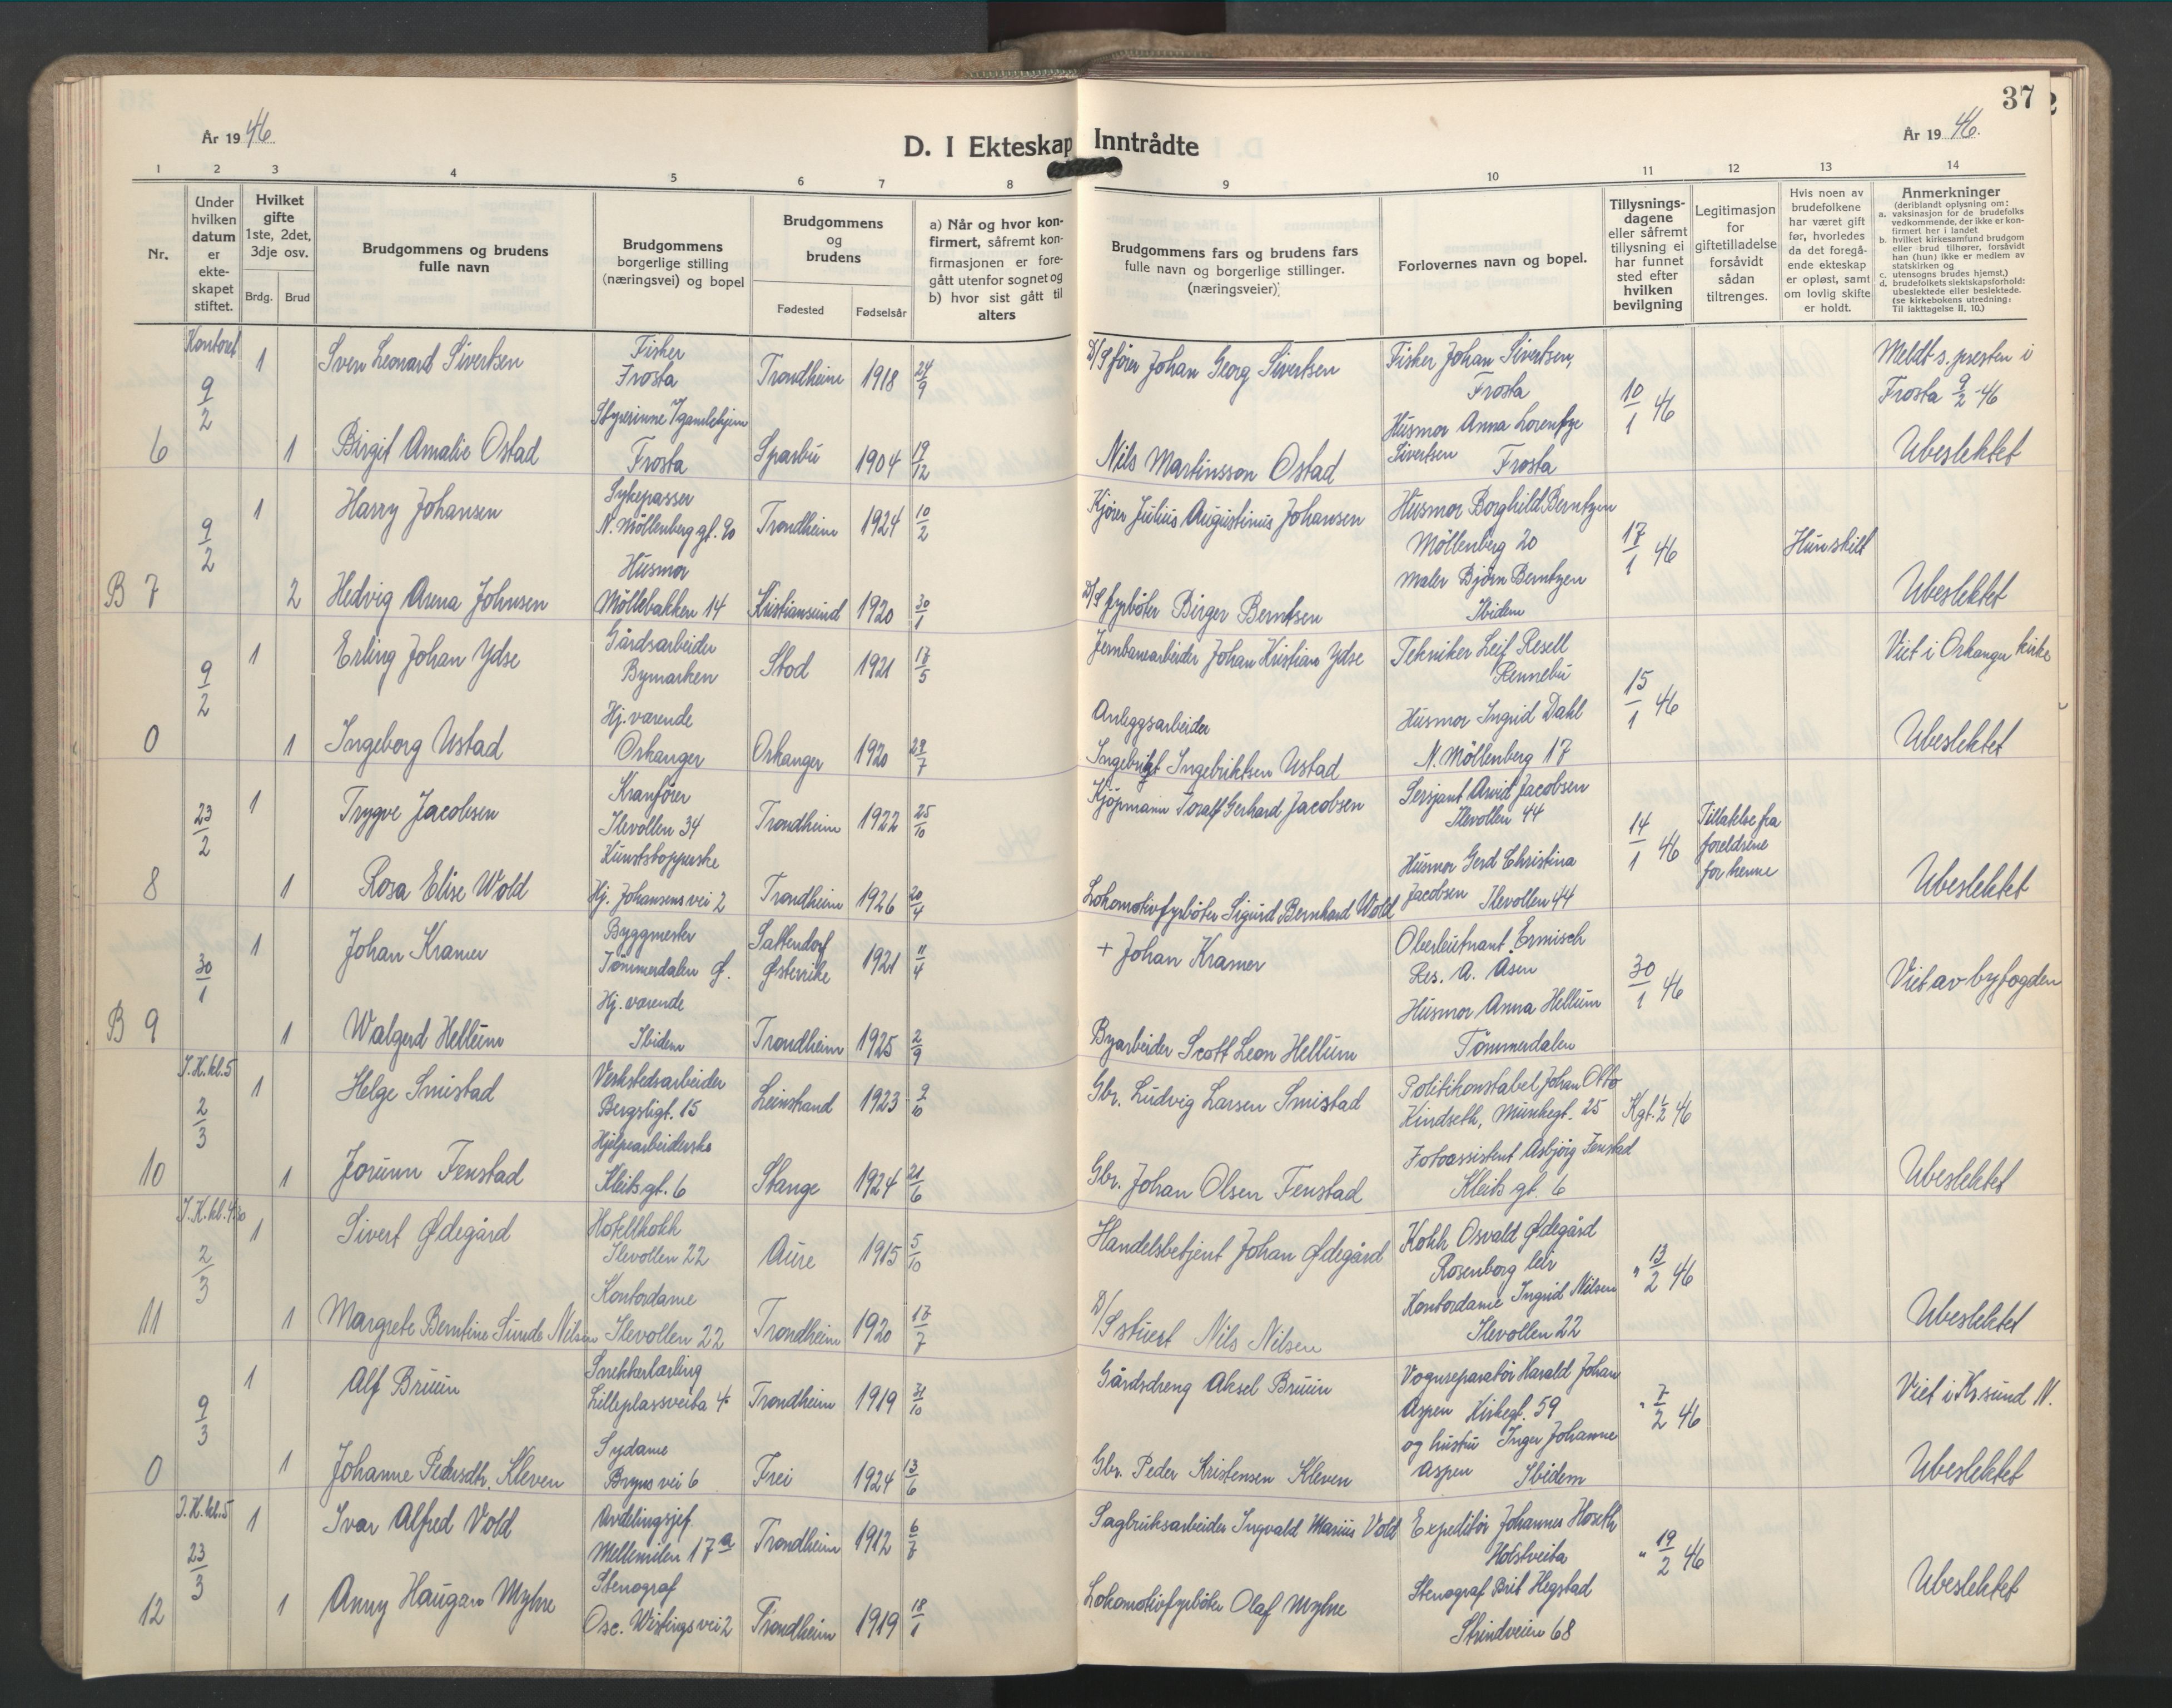 37
År 1946.
D. I Ekteskap Inntrådte
År 1946.
1 2 3 4 5 6 7 8 9 10 11 12 13 14
Nr.
Under hvilken datum er ekte-skapet stiftet.
Hvilket gifte 1ste, 2det, 3dje osv.
Brdg. Brud
Brudgommens og brudens fulle navn
Brudgommens borgerlige stilling (næringsvei) og bopel
Brudgommens og brudens
Fødested Fødselsår
a) Når og hvor kon-firmert, såfremt kon-firmasjonen er fore-gått utenfor sognet og
b) hvor sist gått til alters
Brudgommens fars og brudens fars fulle navn og borgerlige stillinger. (næringsveier).
Forlovernes navn og bopel.
Tillysnings-dagene eller såfremt tillysning ei har funnet sted efter hvilken bevilgning
Legitimasjon for giftetilladelse forsåvidt sådan tiltrenges.
Hvis noen av brudefolkene har været gift før, hvorledes da det foregå-ende ekteskap er opløst, samt om lovlig skifte er holdt.
Anmerkninger
(deriblandt oplysning om:
a. vaksinasjon for de brudefolks vedkommende, der ikke er kon-firmert her i landet.
b. hvilket kirkesamfund brudgom eller brud tilhører, forsåvidt han (hun) ikke er medlem av statskirken og
c. utensogns brudes hjemst.)
d. brudefolkets slektskapsforhold: ubeslektede eller beslektede.
(se kirkebokens utredning: Til iakttagelse II, 10.)
Kontoret 9/2 1 Sven Leonard Sivertsen Fisker Frosta Trondheim 1918 24/9 D/S fører Johan Georg Sivertsen Fisker Johan Sivertsen, Frosta 10/1 46 Meldt s.presten i Frosta 9/2-46
6 1 Birgit Amalie Ostad Styrerinne /gamlehjem Frosta Sparbu 1904 19/12 Nils Martinsson Ostad Husmor Anna Lorentze Sivertsen Frosta Ubeslektet
9/2 1 Harry Johansen Sykepasser N. Möllenberg gt. 20 Trondheim 1924 10/2 Kjører Julius Augustinus Johansen Husmor Borghild Berntzen Möllenberg 20 17/1 46 Hun skilt
B 7 2 Hedvig Arena Johnsen Husmor Möllebakken 14 Kristiansund 1920 30/1 D/S fyrböter Birger Berntsen Maler Björn Berntzen Ibidem Ubeslektet
9/2 1 Erling Johan Ydse Gårdsarbeider Bymarken Stod 1921 17/5 Jernbanearbeider Johan Kristian Ydse Tekniker Leif Resell Rennebu 15/1 46 Viet i Orkanger kirke
0 1 Ingeborg Ustad Hj. værende Orkanger Orkanger 1920 29/7 Anleggsarbeider Ingebrigt Ingebriktsen Ustad Husmor Ingrid Dahl N. Möllenberg 17 Ubeslektet
23/2 1 Trygve Jacobsen Kranförer Ilevollen 34 Trondheim 1922 25/10 Kjöpmann Toralf Gerhard Jacobsen Sersjant Arvid Jacobsen Ilevollen 44 14/1 46 Tillatelse fra foreldrene for henne
8 1 Rosa Elise Wold Kunststopperske Hj. Johansens vei 2 Trondheim 1926 20/4 Lokomotivfyrböter Sigurd Bernhard Wold Husmor Gerd Christina Jacobsen Ilevollen 44 Ubeslektet
30/1 1 Johan Kramer Byggmester Tømmerdalen Ø. Sattendorf Østerrike 1921 11/4 + Johan Kramer Oberleutnant Ermisch Res. A. Åsen 30/1 46 Viet av byfogden
B 9 1 Walgerd Hellum Hj. værende Ibidem Trondheim 1925 2/9 Byarbeider Scott Leon Hellum Husmor Anna Hellum Tömmerdalen
I.K. kl. 5 2/3 1 Helge Smistad Verkstedsarbeider Bergsligt. 15 Leinstrand 1923 9/10 Gbr. Ludvig Larsen Smistad Politikonstabel Johan Otto Kindseth, Munkegt. 25 Kgt. 1/2 46
10 1 Jorunn Fenstad Hjelpearbeiderske Kleists gt. 6 Stange 1924 21/6 Gbr. Johan Olsen Fenstad Fotoassistent Asbjörg Fenstad Kleists gt. 6 Ubeslektet
I.K. kl. 4.30 2/3 1 Sivert Ødegård Hotellkokk Ilevollen 22 Aure 1915 5/10 Handelsbetjent Johan Ødegård Kokk Osvald Ødegård Rosenborg leir " 13/2 46
11 1 Margrete Berntine Sunde Nilsen Kontordame Ilevollen 22 Trondheim 1920 17/7 D/S stuert Nils Nilsen Kontordame Ingrid Nilsen Ilevollen 22 Ubeslektet
9/3 1 Alf Bruun Snekkerlærling Lilleplassveita 4 Trondheim 1919 31/10 Gårdsdreng Aksel Bruun Vognreparatör Harald Johan Aspen Kirkegt. 59 " 7/2 46 Viet i Kr.sund N.
0 1 Johanne Pedersdtr. Kleven Sydame Bryns vei 6 Frei 1924 13/6 Gbr. Peder Kristensen Kleven og hustru Inger Johanne Aspen Ibidem Ubeslektet
I.K. kl. 5 23/3 1 Ivar Alfred Vold Avdelingsjef. Mellemilen 17a Trondheim 1912 6/7 Sagbruksarbeider Ingvald Marius Vold Expeditör Johannes Höseth Holstveita " 19/2 46
12 1 Anny Haugan Myhre Stenograf Osc. Wistings vei 2 Trondheim 1919 18/1 Lokomotivfyrböter Olaf Myhre Stenograf Brit Hegstad Strindveien 68 Ubeslektet